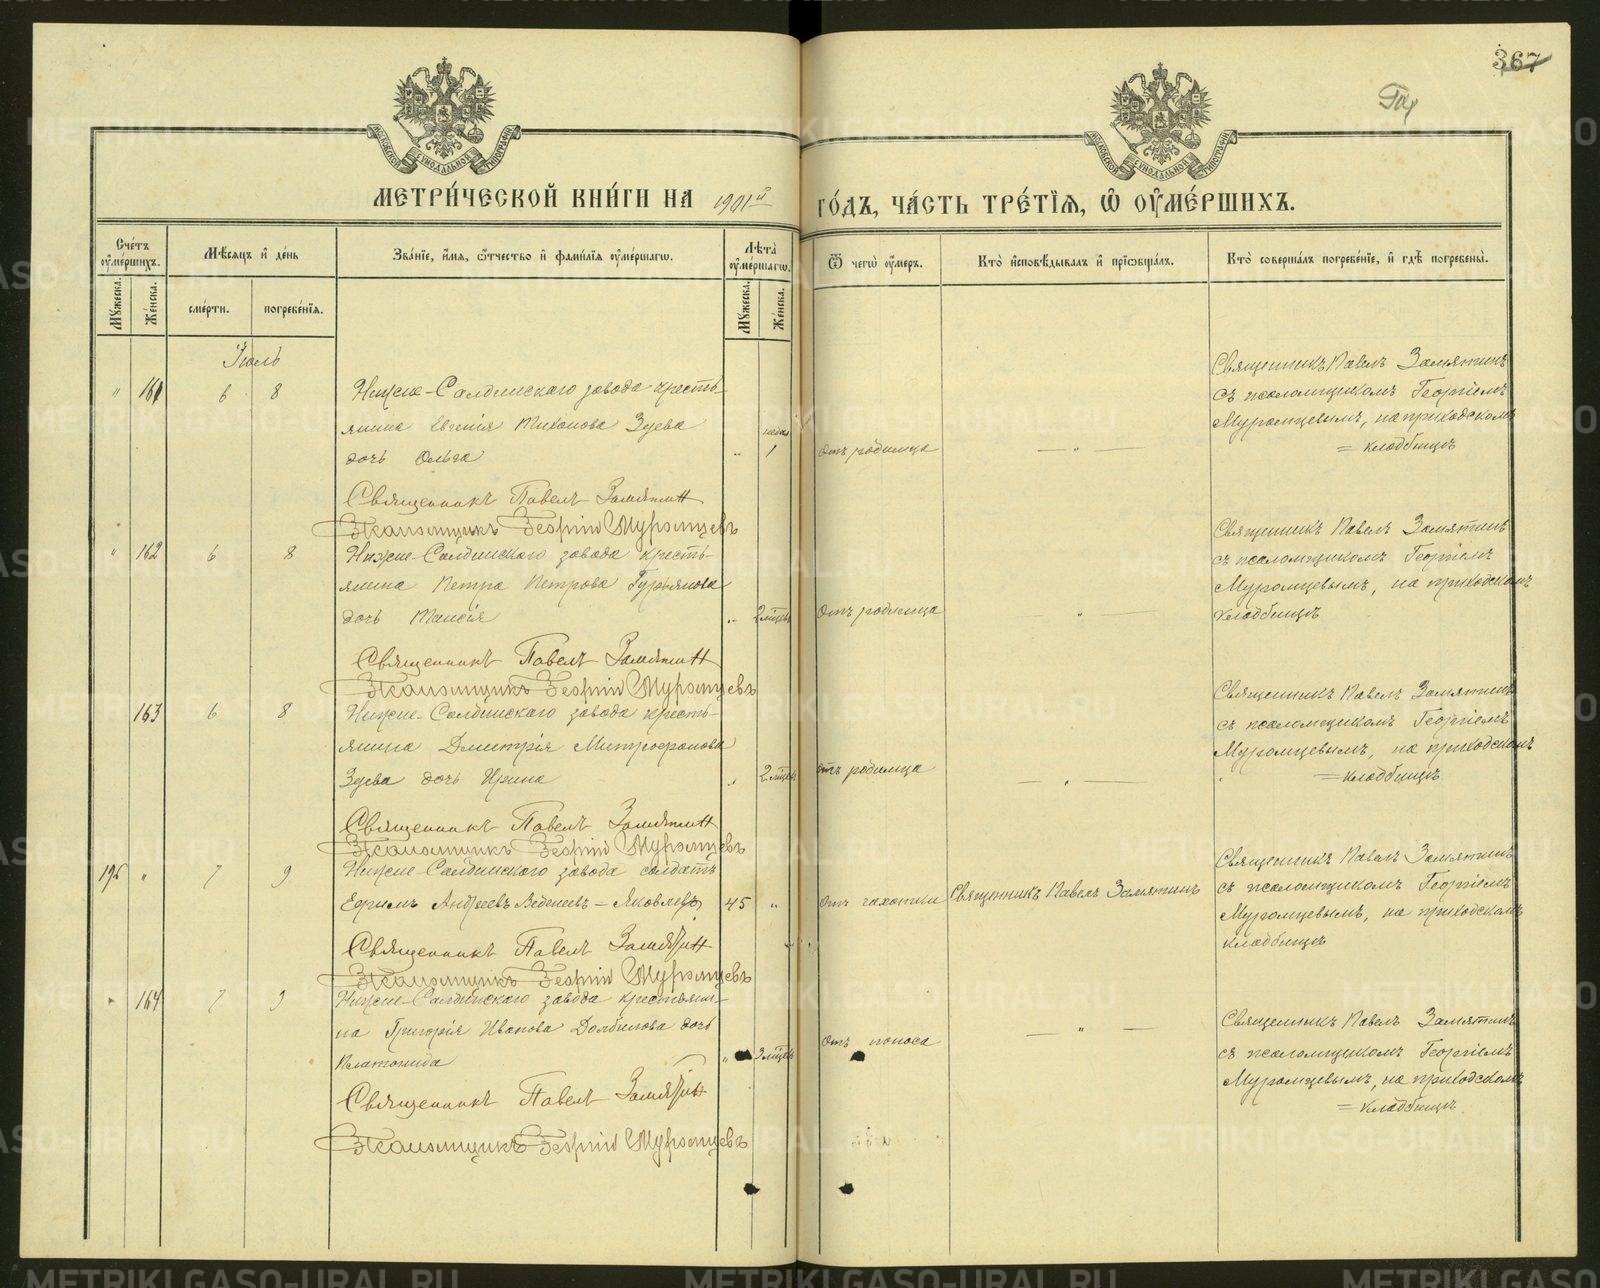 367
МОСКОВСКОЙ СѴНОДАЛЬНОЙ ТИПОГРАФІИ
МОСКОВСКОЙ СѴНОДАЛЬНОЙ ТИПОГРАФІИ
МЕТРИ́ЧЕСКОЙ КНИ́ГИ НА 1901й
ГО́ДЪ, ЧА́СТЬ ТРЕ́ТІЯ, Ѽ ОУ҆МЕ́РШИХЪ.
Сче́тъ оу҆ме́ршихъ.
Мѣ́сяцъ и҆ де́нь
Зва́ніе, и҆́мя, ѻ҆́тчество и҆ фами́лія оу҆ме́ршагѡ.
Лѣ́та оу҆ме́ршагѡ.
Ѿ чегѡ̀ оу҆́меръ.
Кто̀ и҆сповѣ́дывалъ и҆ прїѡбща́лъ.
Кто̀ соверша́лъ погребе́ніе, и҆ гдѣ̀ погребены̀.
Мꙋ́жеска.
Же́нска.
сме́рти.
погребе́нїя.
Мꙋ́жеска.
Же́нска.
Іюль
" 161 6 8
Нижне-Салдинскаго завода кресть-
янина Евгенія Тихонова Зуева
дочь Ольга
" недѣл. 1
отъ родимца
— " —
Священникъ Павелъ Замятинъ
съ псаломщикомъ Георгіемъ
Муромцевымъ, на приходскомъ
= кладбищѣ
Священникъ Павелъ Замятин
Псаломщикъ Георгій Муромцевъ
" 162 6 8
Нижне-Салдинскаго завода кресть-
янина Петра Петрова Гурьянова
дочь Таисія
" 2 мѣсяц.
отъ родимца
" —
Священникъ Павелъ Замятинъ
съ псаломщикомъ Георгіемъ
Муромцевымъ, на приходскомъ
кладбищѣ
Священникъ Павелъ Замятин
Псаломщикъ Георгій Муромцевъ
163 6 8
Нижне-Салдинскаго завода кресть-
янина Дмитрія Митрофанова
Зуева дочь Ирина
" 2 мѣсяц.
отъ родимца
— " —
Священникъ Павелъ Замятинъ
съ псаломщикомъ Георгіемъ
Муромцевымъ, на приходскомъ
= кладбищѣ
Священникъ Павелъ Замятин
Псаломщикъ Георгій Муромцевъ
" 7 9
Нижне-Салдинскаго завода солдатъ
Ефимъ Андреевъ Веденеев-Яковлевъ
45 "
отъ чахотки
Священникъ Павелъ Замятинъ
Священникъ Павелъ Замятинъ
съ псаломщикомъ Георгіемъ
Муромцевымъ, на приходскомъ
кладбищѣ
Священникъ Павелъ Замятин
Псаломщикъ Георгій Муромцевъ
" 164 7 9
Нижне-Салдинскаго завода крестьяни-
на Григорія Иванова Долбилова дочь
Платонида
" 3 мѣсяц.
отъ поноса
— " —
Священникъ Павелъ Замятинъ
съ псаломщикомъ Георгіемъ
Муромцевымъ, на приходскомъ
= кладбищѣ
Священникъ Павелъ Замятин
Псаломщикъ Георгій Муромцевъ
METRIKI.GASO-URAL.RU